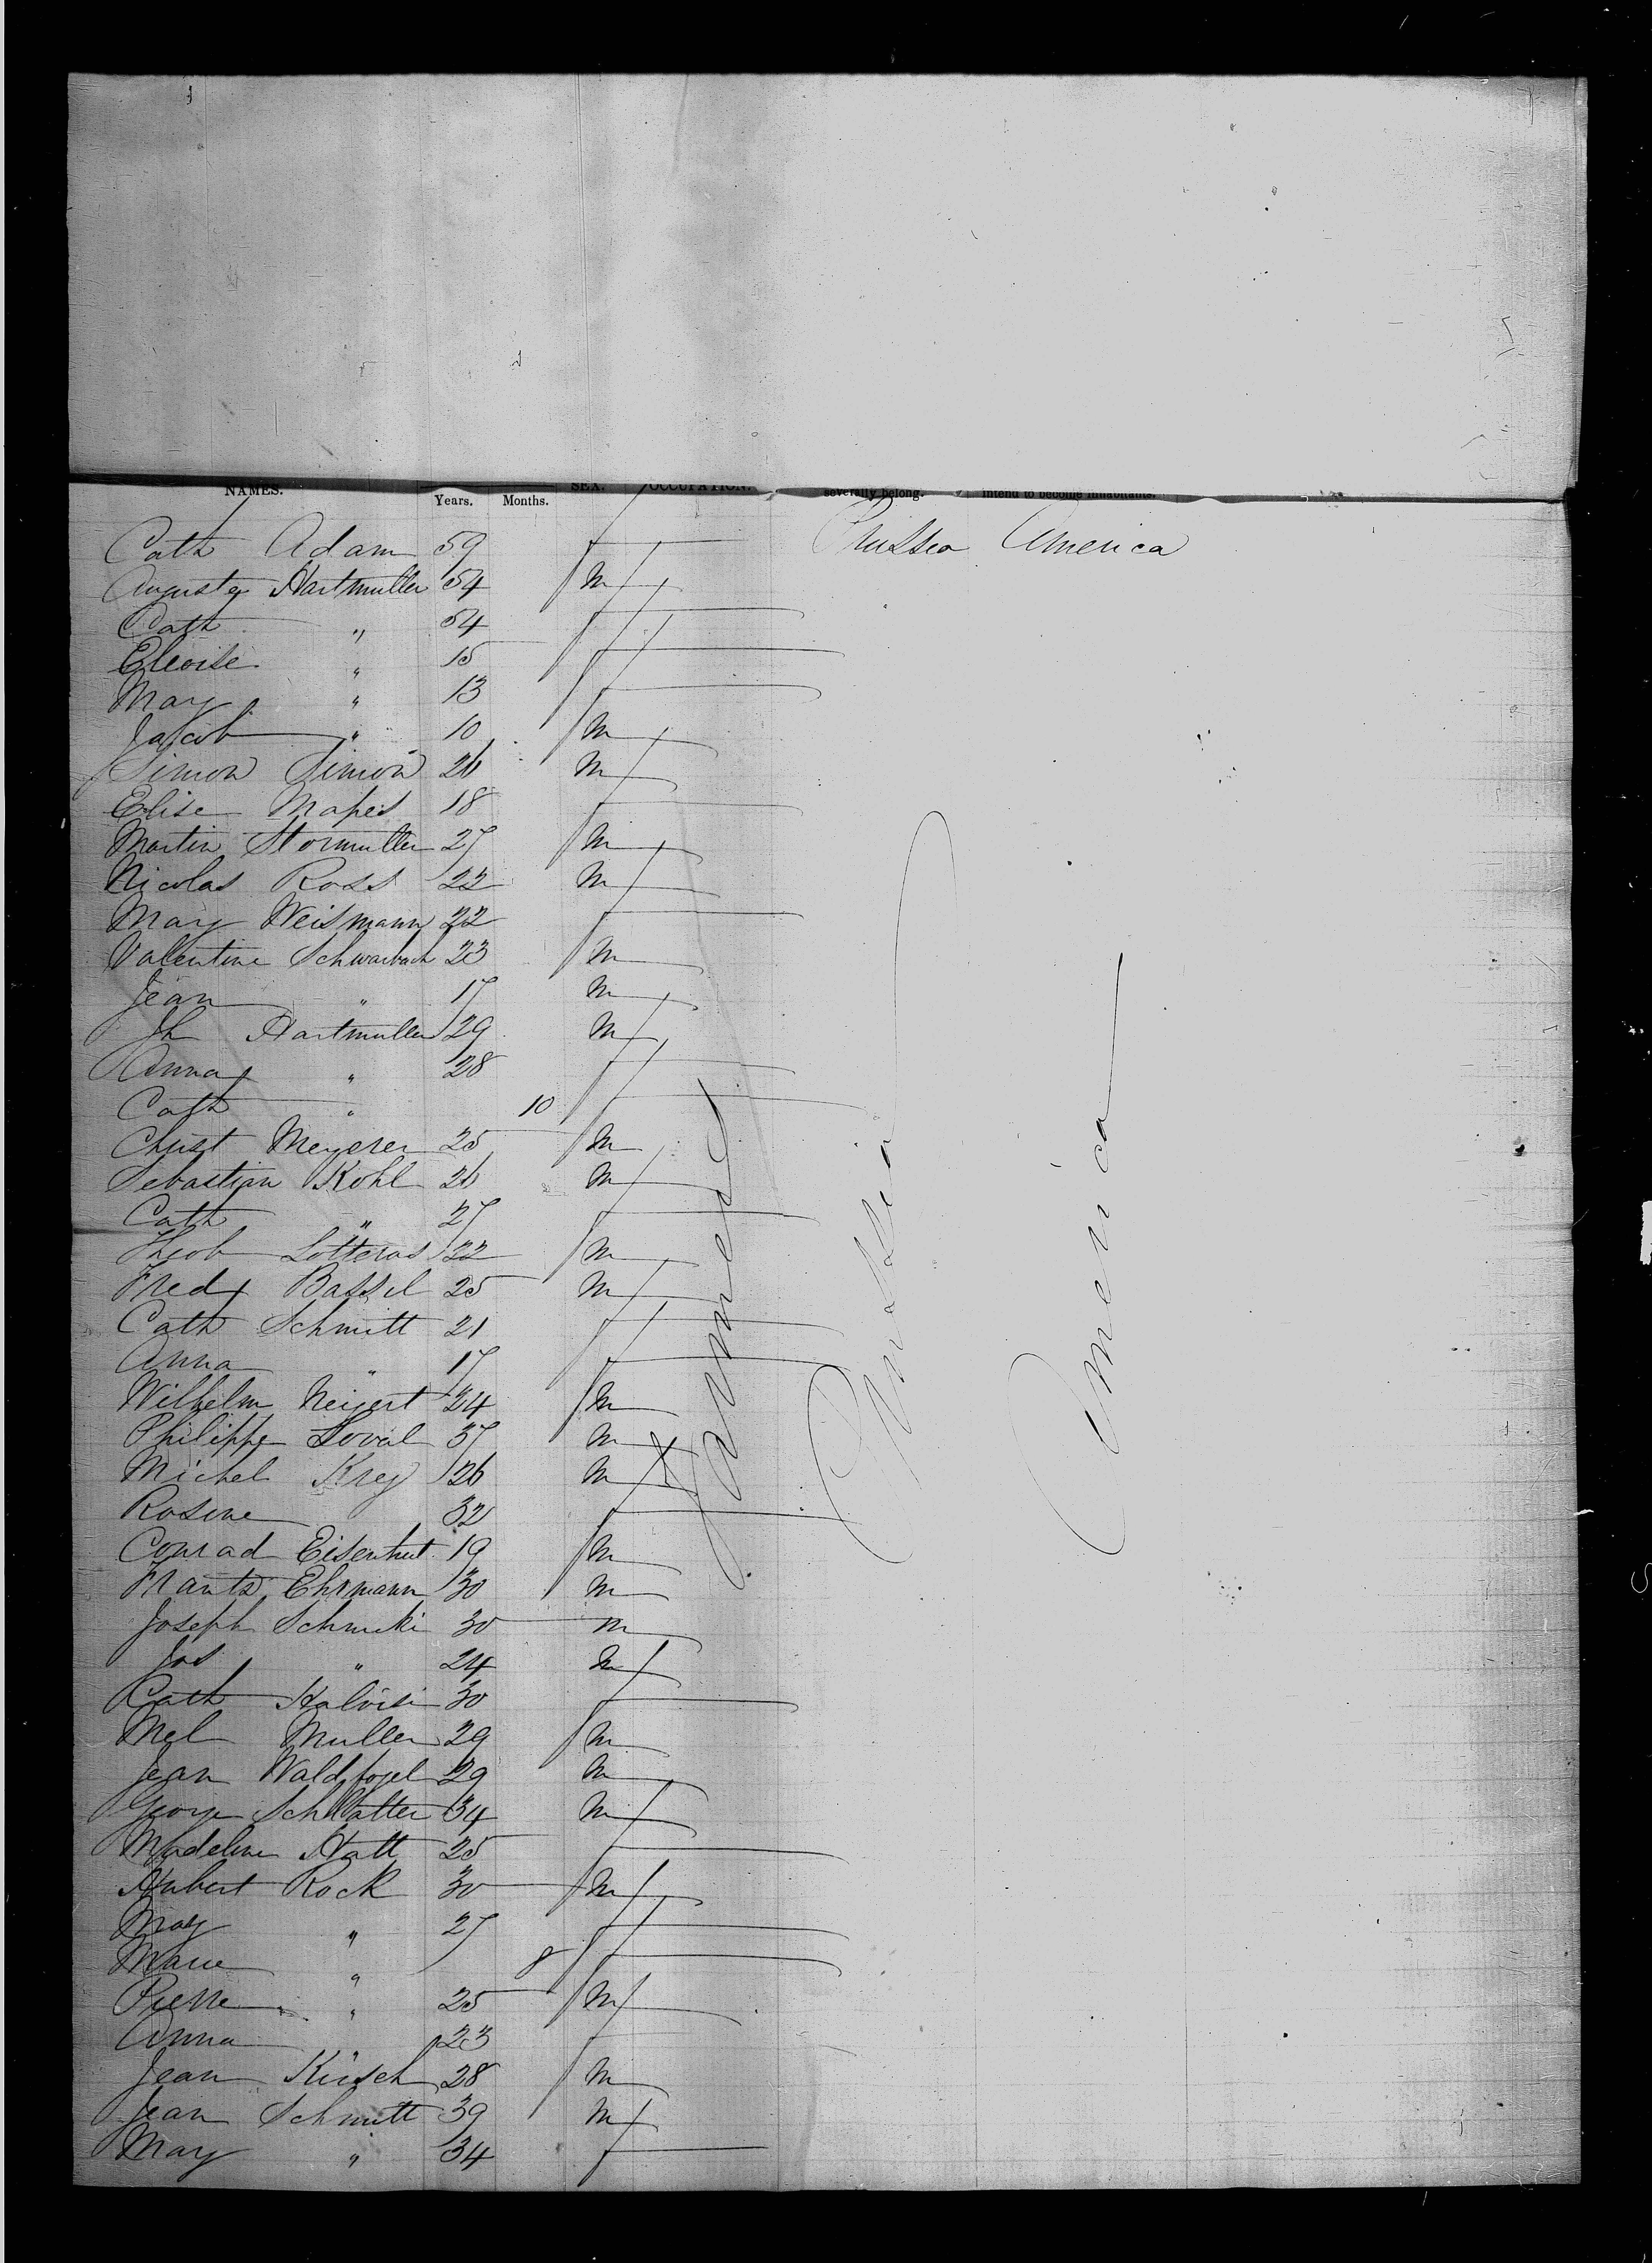 NAMES. Years. Months. SEX. OCCUPATION. severally belong. intend to become inhabitants.
Cath Adam 59 f Prussia America
Auguste Hartmuller 54 m
Cath " 54 f
Eleoise " 15 f
Mary " 13 f
Jacob " 10 m
Simon Simon 26 m
Elise Mapes 18 f
Martin Stormuller 27 m
Nicolas Ross 22 m
Mary Weismann 22 f
Valentine Schwarbach 23 m
Jean " 17 m
Jh Hartmuller 29 m
Anna " 28 f
Cath " 10 f
Christ Meyerer 25 m
Sebastian Kohl 26 m
Cath " 27 f
Jacob Lotteras 22 m
Fred Bassel 25 m
Cath Schmitt 21 f
Anna " 17 f
Wilhelm Neigert 24 m
Philippe Loval 37 m
Michel Krey 26 m
Rosine 32 f
Conrad Eisenhut 19 m
Frantz Ehrmann 30 m
Joseph Schmuki 30 m
Jos " 24 m
Cath 30 f
Mel Muller 29 m
Jean Waldfogel 29 m
George Schlatter 34 m
Madeline Hatt 25 f
Hubert Rock 30 m
May " 27 f
Marie " 8 f
Pierre " 25 m
Anna " 23 f
Jean Kirsch 28 m
Jean Schmitt 39 m
Mary " 34 f
Farmers
Prussia
America